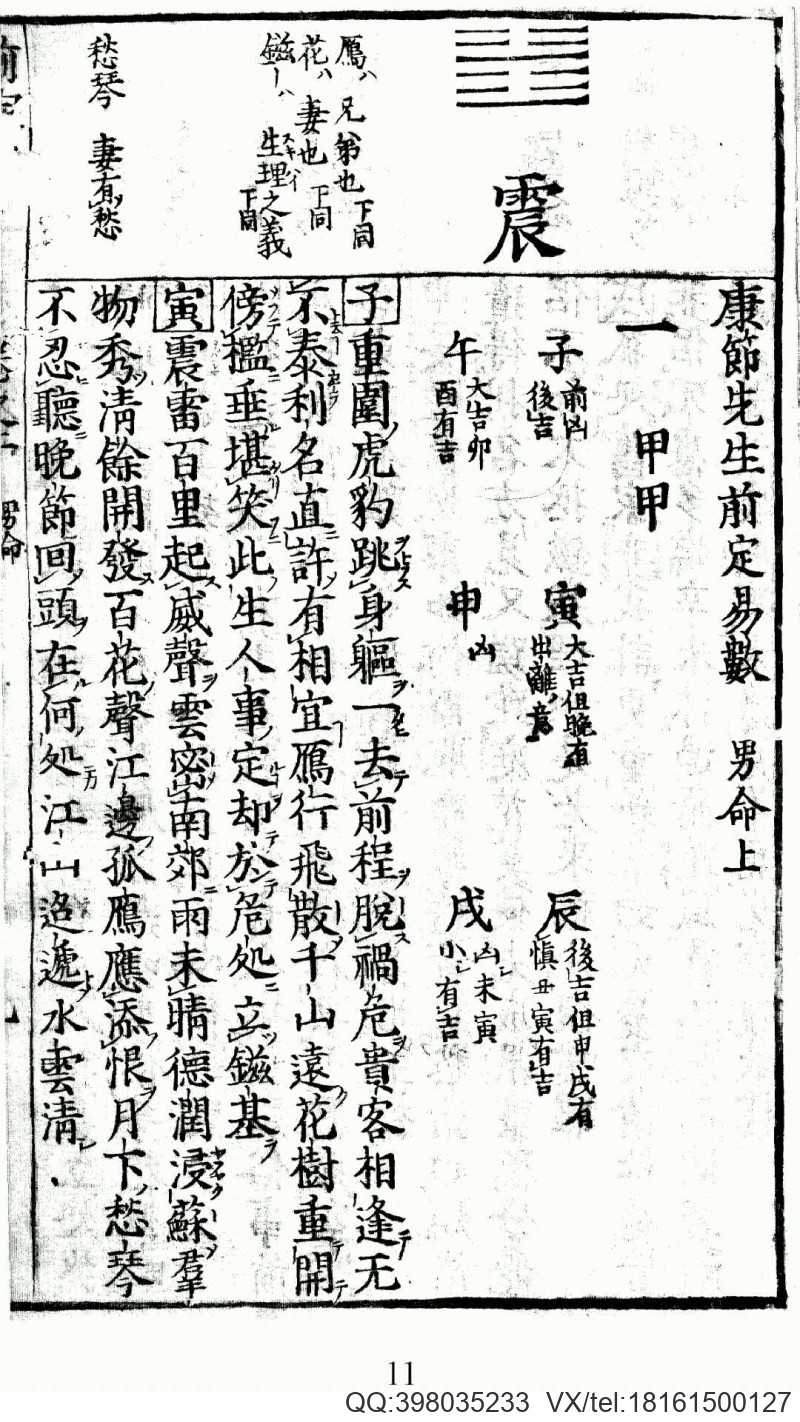 震
鴈ハ兄弟也下同
花ハ妻也下同
鎡ーハ生理之義下同
愁琴 妻有愁
康節先生前定易數 男命上
一 甲甲
子 前凶後吉
寅 大吉但晚有出離ノ意
辰 後吉但申戌有慎丑寅有吉
午 大吉卯酉有吉
申 凶
戌 凶未寅小有吉
子重圍虎豹跳身軀一去前程脫禍危貴客相逢无
不泰利名直許有相宜鴈行飛散千山遠花樹重開
傍檻垂堪笑此生人事定却於危処立鎡基
寅震雷百里起威聲雲密南郊雨未晴德潤浸蘇羣
物秀清餘開發百花聲江邊孤鴈應添恨月下愁琴
不忍聽晚節回頭在何処江山迢遞水雲清
男命
11
QQ:398035233 VX/tel:18161500127